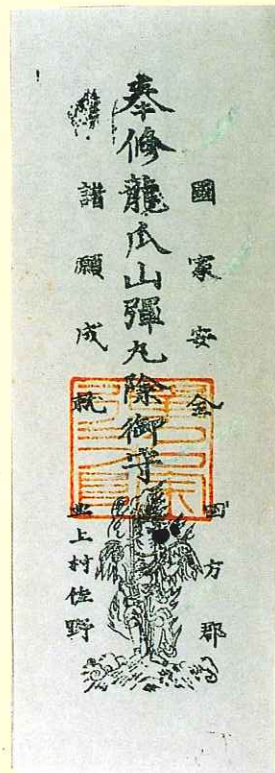 國家安全
奉修龍爪山彈丸除御守
諸願成就
田方郡
上村佐野